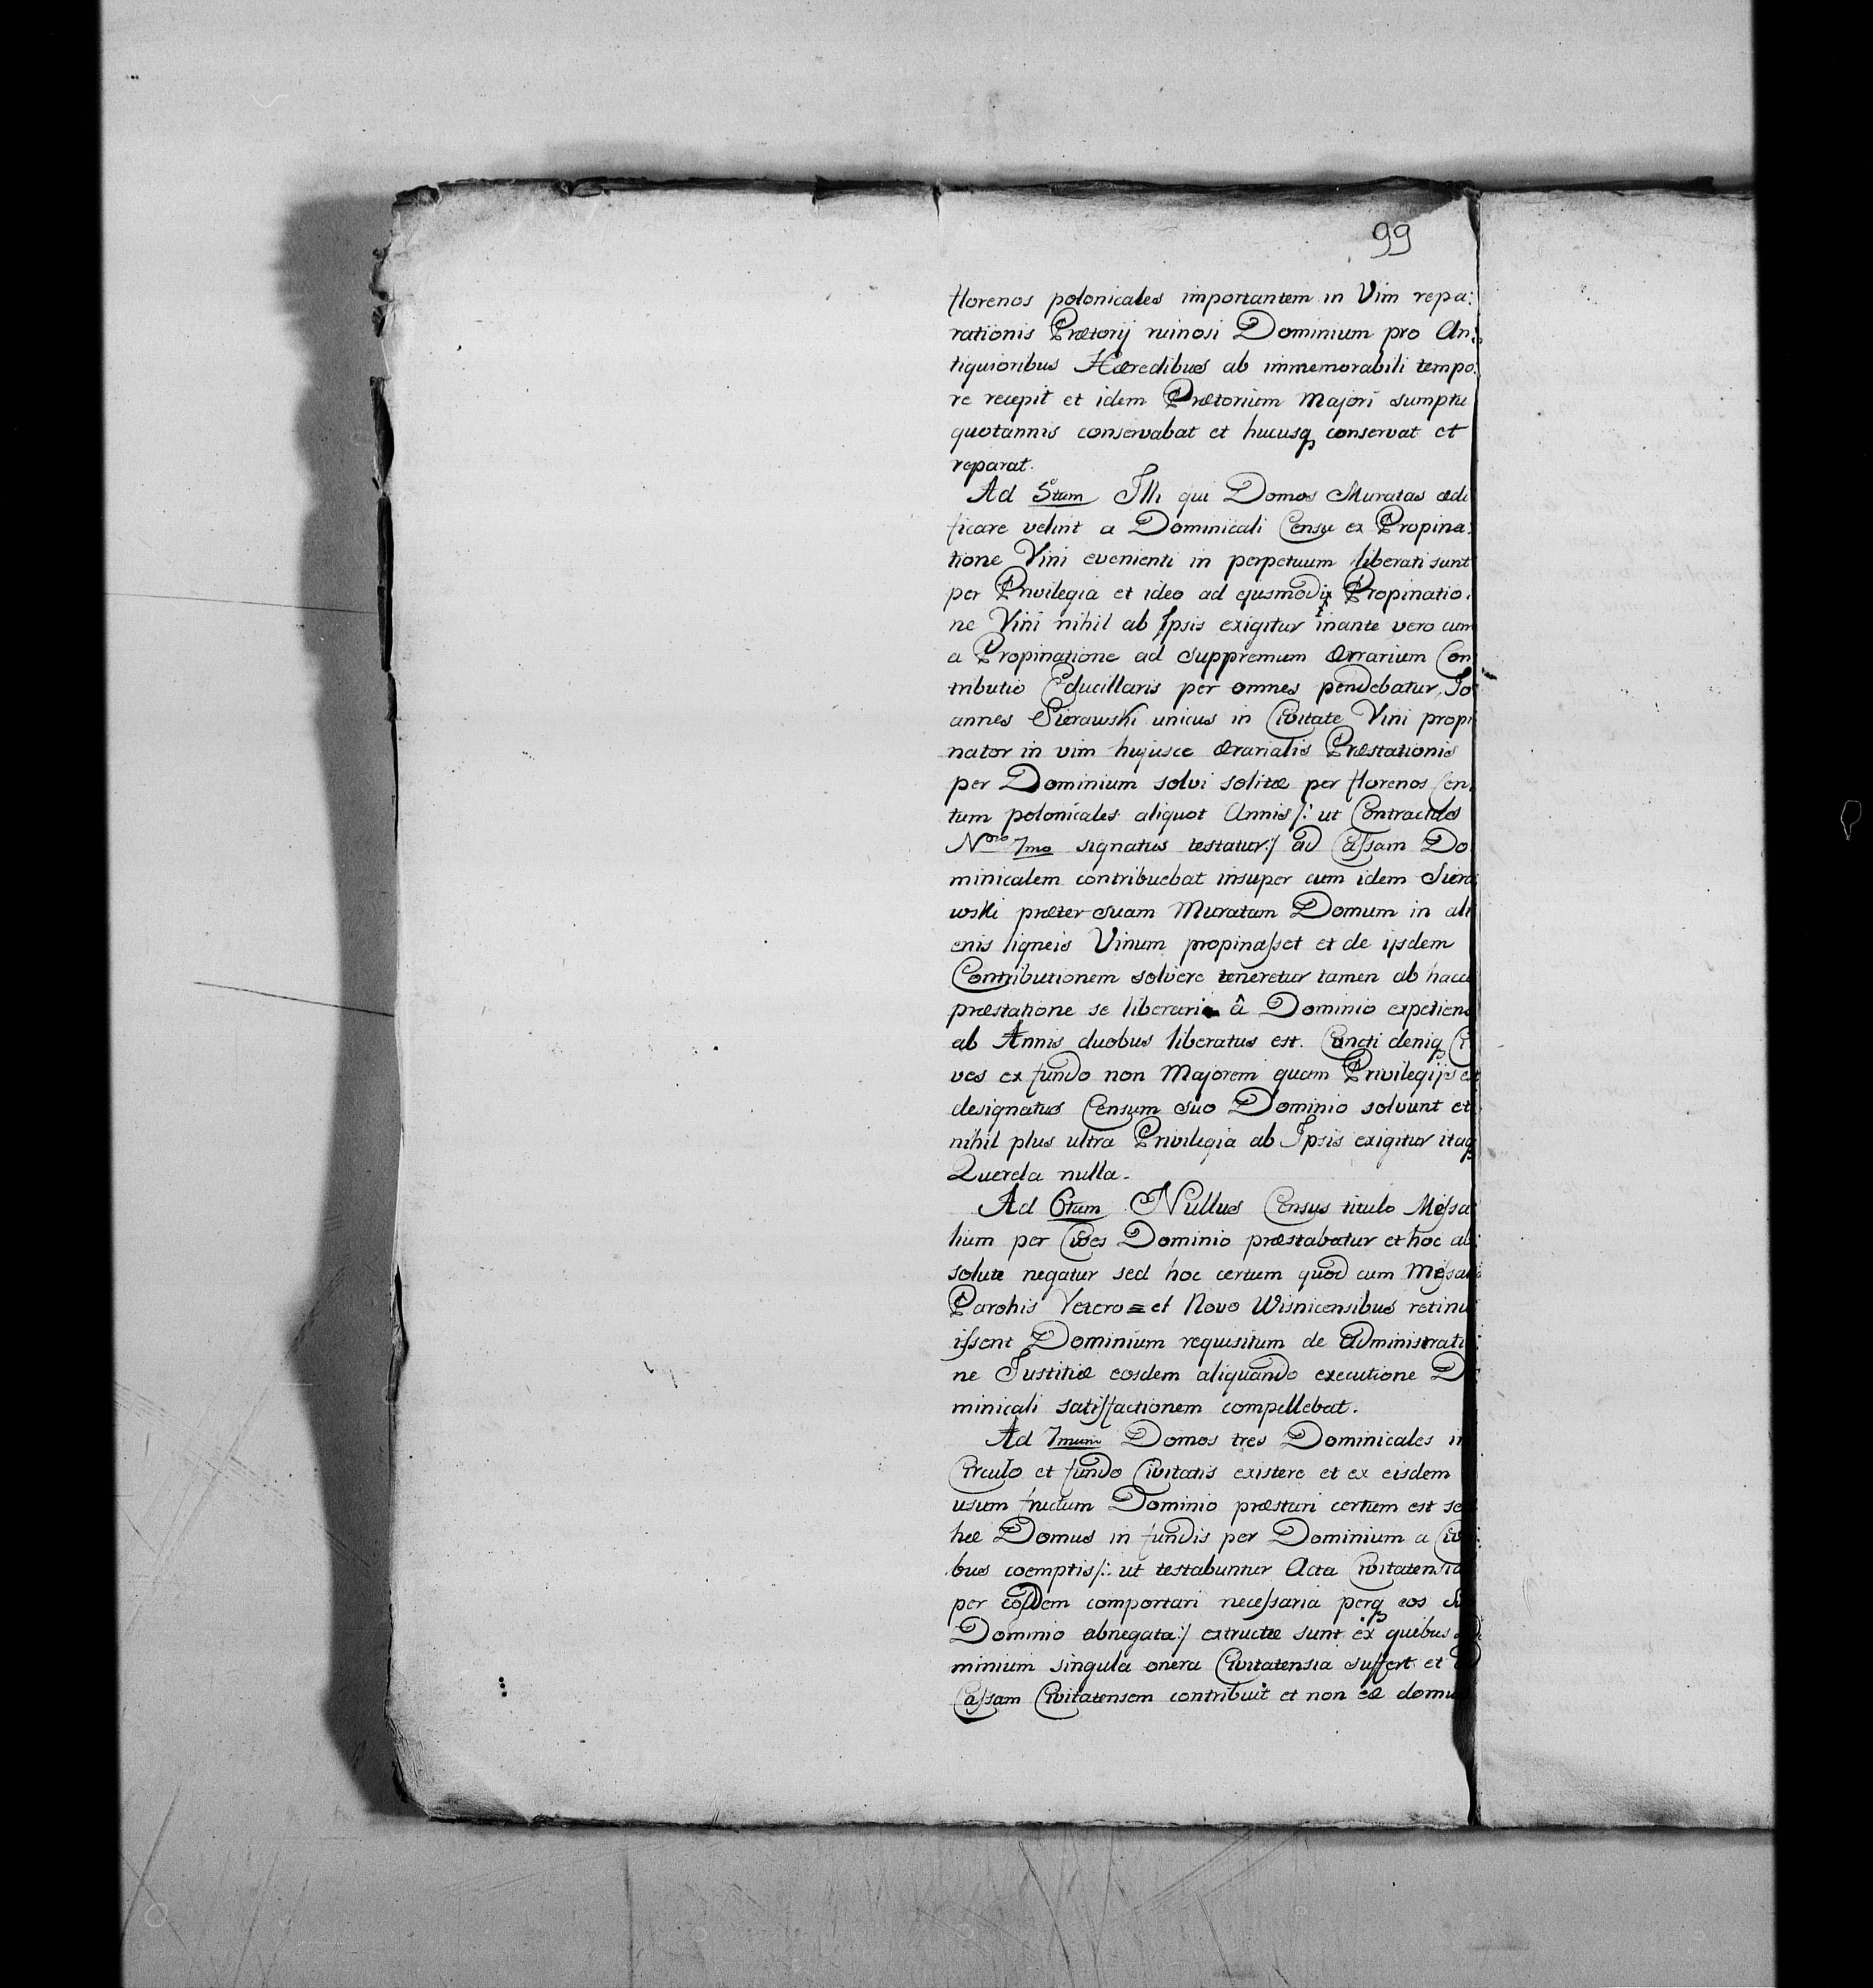 99
florenos polonicales importantem in Vim repa:
rationis Prætorij ruinosi Dominium pro An:
tiquioribus Hæredibus ab immemorabili tempo:
re recepit et idem Prætorium Majori sumptu
quotannis conservabat et hucusq conservat et
reparat.
Ad 5tum Illi qui Domos Muratas ædi
ficare velint a Dominicali Censu ex Propina:
tione Vini evenienti in perpetuum liberati sunt
per Privilegia et ideo ad ejusmodi Propinatio:
ne Vini nihil ab Ipsis exigitur inante vero cum
a Propinatione ad suppremum Ærrarium Con
tributio Educillaris per omnes pendebatur, Jo
annes Sierawski unicus in Civitate Vini propi
nator in vim hujusce ærarialis Præstationis
per Dominium solvi solitæ per florenos Cen
tum polonicales aliquot Annis /: ut Contractus
Nro 7mo signatus testatur :/ ad Cassam Do
minicalem contribuebat insuper cum idem Siera
wski præter suam Muratam Domum in ali
enis ligneis Vinum propinasset et de ijsdem
Contributionem solvere teneretur tamen ab hacce
præstatione se liberari â Dominio expetiens
ab Annis duobus liberatus est. Cuncti deniq Ci
ves ex fundo non Majorem quam Privilegijs est
designatus Censum suo Dominio solvunt et
nihil plus ultra Privilegia ab Ipsis exigitur itaq
Querela nulla.
Ad 6tum Nullus Census titulo Messa
lium per Cives Dominio præstabatur et hoc ab:
solute negatur sed hoc certum quod cum Messalia
Parohis Vetero = et Novo Wisnicensibus retinu
issent Dominium requisitum de Administrati
ne Justitiæ eosdem aliquando executione Do
minicali satisfactionem compellebat.
Ad 7mum Domos tres Dominicales in
Circulo et fundo Civitatis existere et ex eisdem
usum fructum Dominio præstari certum est sed
hæ Domus in fundis per Dominium a Civi:
bus coemptis /: ut testabuntur Acta Civitatensia
per eosdem comportari necessaria perq eos
Dominio abnegata :/ extructæ sunt ex quibus Do
minium singula onera Civitatensia suffert et ad
Cassam Civitatensem contribuit et non eæ domus